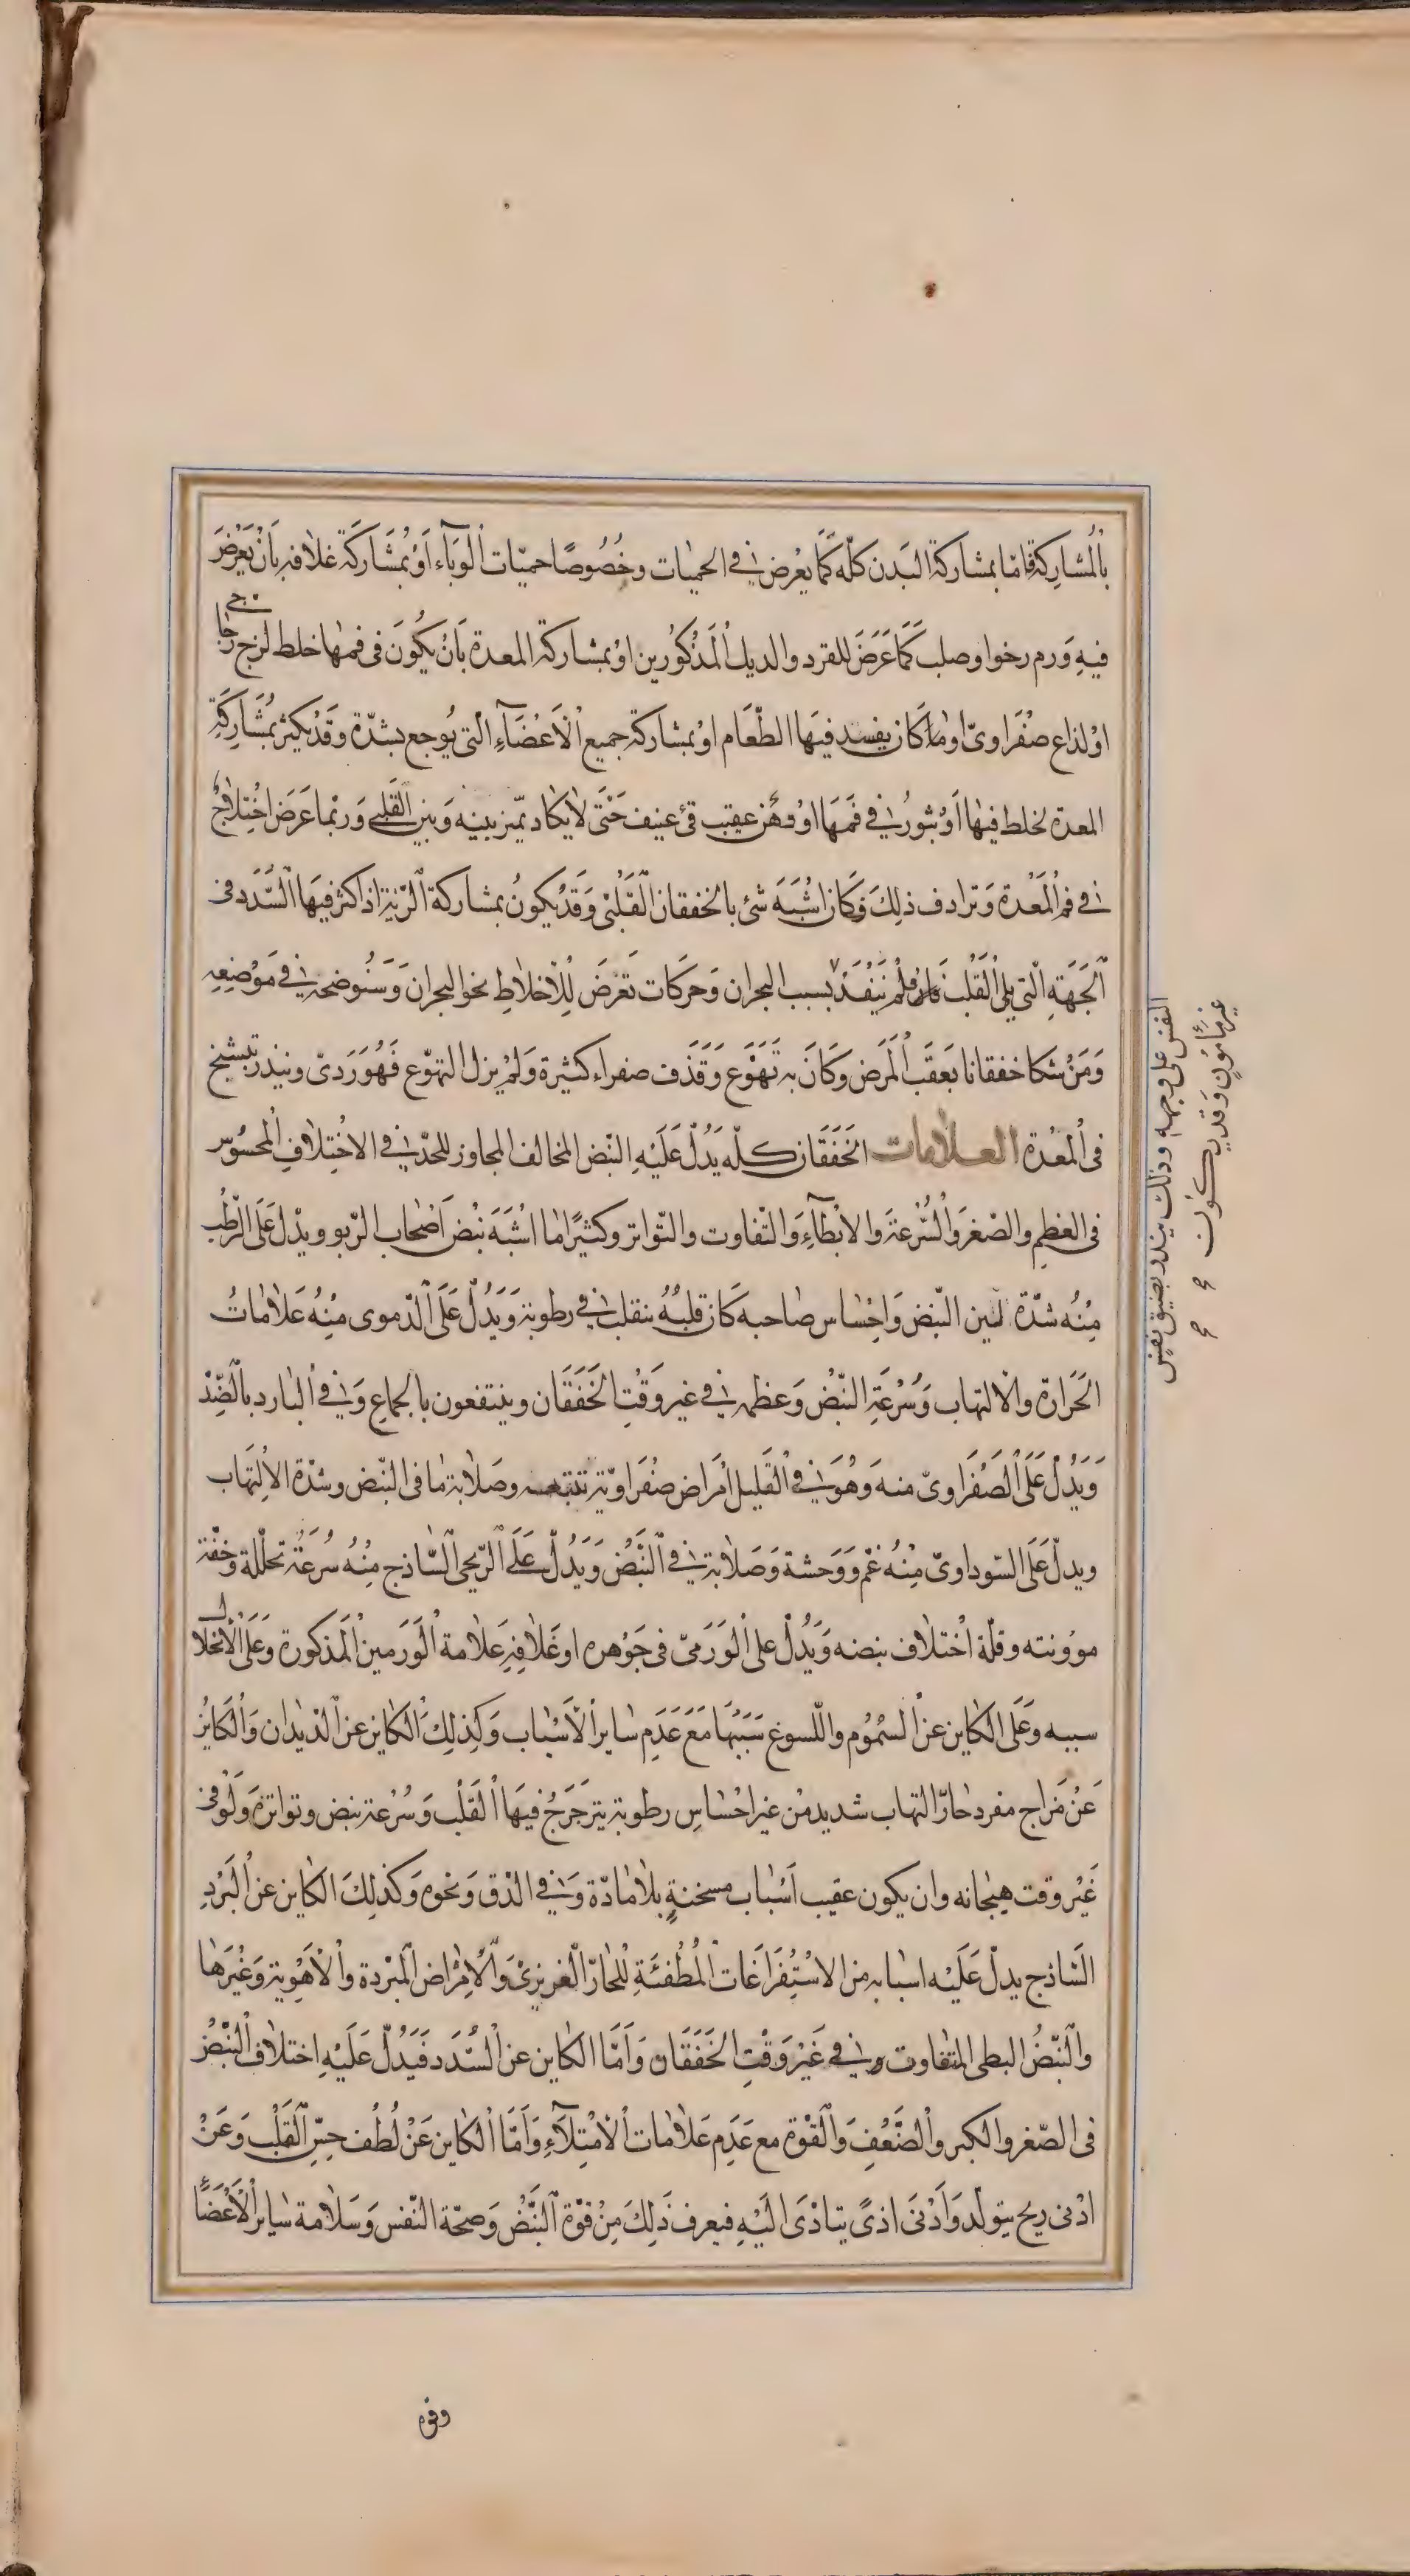 بالمُشاركة فامّا بمشاركة البَدن كلّه كمَا يعْرض فى الحميٰات وخُصُوصًا حميّات الوَبَآء اَوْ بمُشَاركَة غلافه بِاَنْ يَعْرضَ
فيهِ وَرم رخوا وصلب كمَا عَرَضَ للقرد والديك المَذْكُورين اوْ بمشاركة المعدة بَانْ يكُونَ فى فمهٰا خلط لزج زجاجى
اوْ لذاع صَفْرَاوىّ اوْ مٰا كَان يفسد فيهَا الطّعَام اوْ بمشاركة جميع الاَعْضَآءِ الّتى يُوجع بشدّة وقَدْ يكثر بمُشَاركَةِ
المعدة لخلط فيهٰا اَوْ بثورٌ فى فَمهَا اوْ وَهن عقِب قئ عنيف حَتّى لاٰيكٰاد يميّز بينه وَبين القَلبى وَربمٰا عَرَض اخْتِلاٰجٌ
فى فم المَعْدة وَترادف ذلِكَ وَكَان اشْبَهَ شئ بالخفقان القَلْبى وَقَدْيكونُ بمشاركة الرّية اذا كثر فيهَا السُّدَد فى
الجَهَةِ الّتى يلى القَلْبَ فلَمْ يَنفُذْ بسبب البحران وَحركَات تَعْرضَ لِلْاَخلاٰطِ نحو البحران وَسَنُوضحه فى مَوْضِعِهِ
وَمَنْ شكا خفقانا بَعَقَبْ المَرَض وكَانَ به تَهَوُّع وَقَذف صفراء كثيرة وَلمْ يزل التهوّع فَهُوَ رَدىّ وينذر بتشنج
فى المعْدة العلامات الخَفَقَان كلّه يَدُلّ عَلَيْهِ النّبض المخالف المجاوز للحدّ فى الاخْتِلاٰفِ المحسُوس
فى العظم والصّغر وَالسُّرْعَة وَالابْطآءِ وَالتّفاوت والتّواتر وكثيرًا مٰا اشْبَهَ نبْضَ اَصْحَاب الرّبو ويدْل عَلَى الرّطْب
مِنْهُ شدّة لين النّبض وَاحْسَاس صَاحبه كَان قلبهُ ينقلب فى رطوبة وَيَدُلّ عَلَى الدّموى مِنْهُ عَلاٰمٰاتُ
الحَرَارة والالتهاب وَسُرْعَةِ النّبْض وَعظمه فى غير وَقْتِ الخَفَقَان وينتفعون بالجماع وَفى البٰارد بالضِّدّ
وَيَدُلُّ عَلَى الصَّفْرَاوىّ منه وَهُوَ فى القَليل امْرَاض صَفْرَاويّة تتبعه وصَلاٰبة مٰا فى النّبض وشدّة الاِلتهَاب
ويدلّ عَلَى السّوداوىّ مِنْهُ غمّ وَوَحشة وَصَلاٰبة فى النَّبْض وَيَدُلّ عَلَى الرّيحى السّاذج مِنْهُ سُرعَةُ تحلّله وَخفّة
موؤنته وقلّة اخْتلاف نبضه وَيَدُلّ على الوَرَمىّ فى جَوْهره اوغلاٰفهِ عَلاٰمة الوَرَمين المَذكورة وَعَلَى الانحلال
سببه وعَلَى الكَاين عن السّمُوُم واللّسوع سَبَبُهَا مَعَ عَدَم سٰاير الاَسْبَاب وَكَذلِكَ الكَاين عن الدّيدٰان وَالكَاينُ
عَنْ مَزاج مفرد حٰارّ التهاب شديد مْن غير احْسَاسِ رطوبة يترَجَرجُ فيهَا القَلْب وَسُرْعة نبض وتواتره وَلَوْ فى
غَيْر وقت هيجانه وان يكون عقيب اَسْبٰاب مسخنةٍ بلاٰ مٰادّة وَفى الدّق وَنحوه وَكَذلِكَ الكٰاين عن البَرْدِ
السّاذج يدلّ عَلَيْه اسبٰابه من الاسْتِفْرَاغَات المُطْفئَةِ لِلحٰارّ الغَريزىّ وَالامْرَاض المبْردة والاَهْوِية وَغيْرهَا
والنّبْضُ البطى المتفاوت فى غَيْر وَقْتِ الخَفَقَان وَاَمَّا الكٰاين عن السُّدَد فَيَدُلّ عَلَيْهِ اختلاٰف النّبْض
فى الصّغر والكبر والضَّعْفِ وَالقوّة مع عَدَم عَلاٰمٰات الاِمْتِلاَءِ وَاَمَّا الكٰاين عَنْ لُطف حِسّ القَلْب وَعَنْ
ادْنى ريح يتولّد وَاَدْنَى اذىً يتادّى الَيْهِ فيعرف ذلِكَ مِنْ قوّة النَّبْضْ وَصحّة النّفس وَسَلاٰمة سٰاير الاَعْضَآ
النفس على وجهه وذلك ينذر بضيق نفس
غير مأمونٍ وَقد يكون
وفى